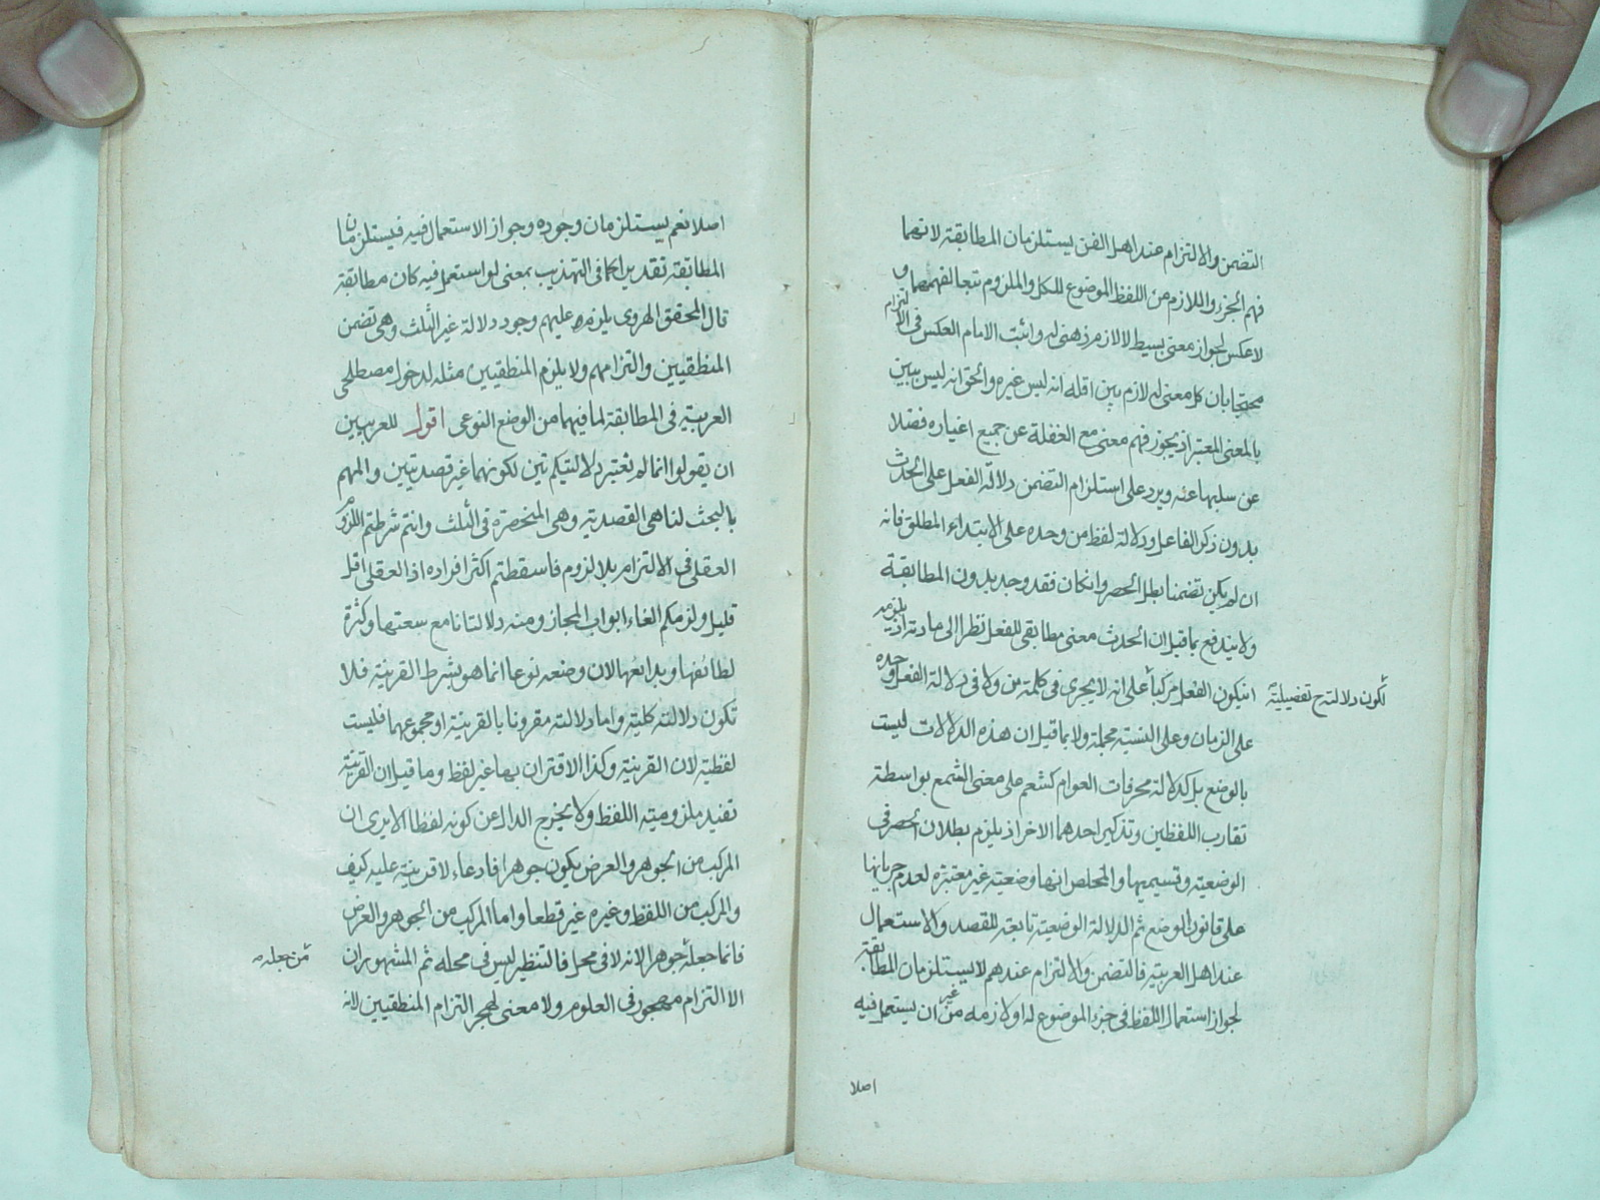 التضمن والالتزام عند اهل الفن يستلزمان المطابقة لانهما
فهم الجزء واللازم من اللفظ الموضوع للكل والملزوم تبعا لفهمهما و
لا عكس لجواز معنى بسيط لا لازم ذهنى له واثبت الامام العكس فى الالتزام
محتجا بان كل معنى له لازم بين اقله انه ليس غيره والحق انه ليس ببين
بالمعنى المعتبر اذ يجوز فهم معنى مع الغفلة عن جميع اغياره فضلا
عن سلبها عنه ويرد على استلزام التضمن دلالة الفعل على الحدث
بدون ذكر الفاعل ودلالة لفظ من وحده على الابتداء المطلق فانه
ان لم يكن تضمنا بطل الحصر وان كان فقد وجد بدون المطابقة
ولا يندفع بما قيل ان الحدث معنى مطابقى للفعل نظرا الى مادته اذ يلزمه
ان يكون الفعل مركبا على انه لا يجرى فى كلمة من ولا فى دلالة الفعل وحده
لكون دلالته ح تفصيلية
على الزمان وعلى النسبة مجملة ولا بما قيل ان هذه الدلالات ليست
بالوضع بل كدلالة محرفات العوام كشعم على معنى الشمع بواسطة
تقارب اللفظين وتذكير احدهما الاخر اذ يلزم بطلان الحصر فى
الوضعية وقسيميها والمخلص انها وضعية غير معتبرة لعدم جريانها
على قانون الوضع ثم الدلالة الوضعية تابعة للقصد والاستعمال
عند اهل العربية فالتضمن والالتزام عندهم لا يستلزمان المطابقة
لجواز استعمال اللفظ فى جزء الموضوع له او لازمه من غير ان يستعمل فيه
اصلا
اصلا نعم يستلزمان وجوده وجواز الاستعمال فيه فيستلزمان
المطابقة تقديرا كما فى التهذيب بمعنى لو استعمل فيه كان مطابقة
قال المحقق الهروى يلزم عليهم وجود دلالة غير الثلث وهى تضمن
المنطقيين والتزامهم ولا يلزم المنطقيين مثله لدخول مصطلحى
العربية فى المطابقة لما فيهما من الوضع النوعى اقول للعربيين
ان يقولوا انما لم نعتبر دلالتيكم تين لكونهما غير قصديتين والمهم
بالبحث لنا هى القصدية وهى المنحصرة فى الثلث وانتم شرطتم اللزوم
العقلى فى الالتزام بلا لزوم فاسقطتم اكثر افراده اذ العقلى اقل
قليل ولزمكم الغاء ابواب المجاز ومنه دلالتانا مع سعتها وكثرة
لطائفها وبدائعها لان وضعه نوعا انما هو بشرط القرينة فلا
تكون دلالته كلية واما دلالته مقرونا بالقرينة او مجموعهما فليست
لفظية لان القرينة وكذا الاقتران بها غير لفظ وما قيل ان القرينة
تفيد ملزومية اللفظ ولا يخرج الدال عن كونه لفظا الا يرى ان
المركب من الجوهر والعرض يكون جوهرا فادعاء لا قرينة عليه كيف
والمركب من اللفظ وغيره غير قطعا واما المركب من الجوهر والعرض
فانما جعله جوهرا لانه لا فى محل فالتنظير ليس فى محله ثم المشهور ان
من جعله
الالتزام مهجور فى العلوم ولا معنى لهجر التزام المنطقيين لانه